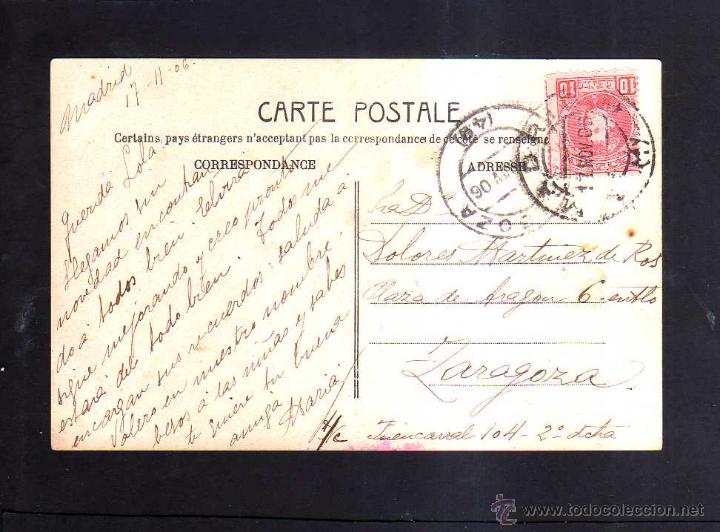 Madrid
17-11-06.
CARTE POSTALE
Certains pays étrangers n'acceptant pas la correspondance de ce côté se renseigner
CORRESPONDANCE
ADRESSE
Querida Lola:
Llegamos sin
novedad encontran
do a todos bien. Elvira
sigue mejorando y creo pronto
estará del todo bien. Todos me
encargan sus recuerdos; saluda a
Valero en nuestro nombre,
besos a las niñas y sabes
te quiere tu buena
amiga María
Dolores Martinez de Ros
Plaza de Aragon 6 entlo
Zaragoza
Fuencarral 104-2º dcha
10 10
MADRID
NOV 06
todocoleccion
www.todocoleccion.net